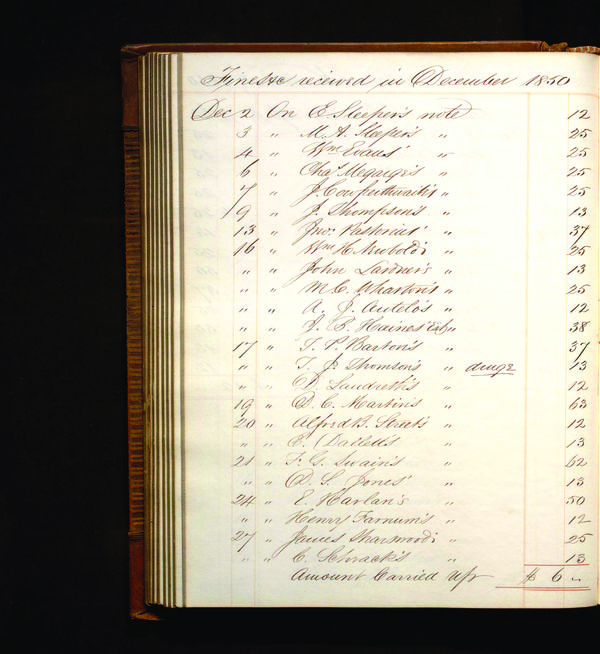 Fines &c received in December 1850
Dec 2 On E Sleeper's note 12
3 " M. A. Sleeper's " 25
4 " Wm Evans' " 25
6 " Chas. Megargee's " 25
7 " J. Cowperthwait's " 25
9 " J. Thompson's " 13
13 " Jno. 37
16 " Wm H. Newbold's " 25
" " John Lardner's " 13
" " M. C. Wharton's " 25
" " A. J. Antelo's " 12
" " J. B. Haines' " 38
17 " T. P. Barton's " 37
" " T. J. Thomson's " 13
" " D. Landreth's " 12
19 " D. C. Martin's " 63
20 " Alfred B. Street's " 12
" " C. Dallett's " 13
21 " F. G. Swain's " 62
" " D. S. Jones' " 13
24 " E. Harlan's " 50
" " Henry Farnum's " 12
27 " James Sharswood's " 25
" " C. Schrack's " 13
Amount Carried up $ 6 "